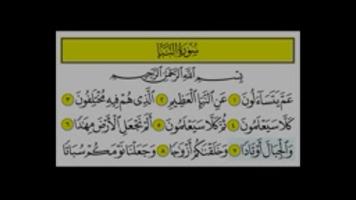 سورة النبإ
بسم الله الرحمن الرحيم
عم يتساءلون ١ عن النبإ العظيم ٢ الذي هم فيه مختلفون ٣
كلا سيعلمون ٤ ثم كلا سيعلمون ٥ ألم نجعل الأرض مهدا ٦
والجبال أوتادا ٧ وخلقنكم أزوجا ٨ وجعلنا نومكم سباتا